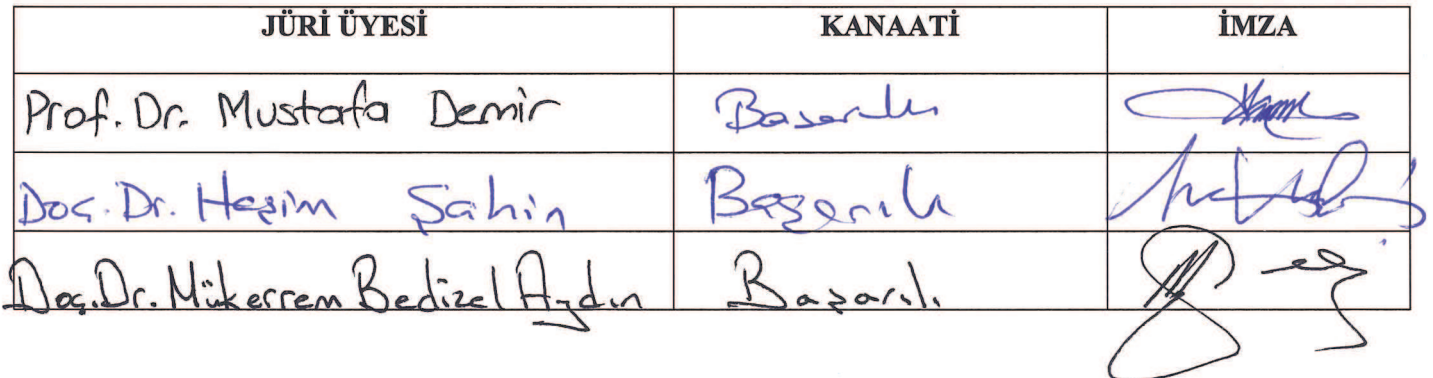 JÜRİ ÜYESİ KANAATİ İMZA
Prof. Dr. Mustafa Demir Başarılı
Doç. Dr. Haşim Şahin Başarılı
Doç. Dr. Mükerrem Bedizel Aydın Başarılı